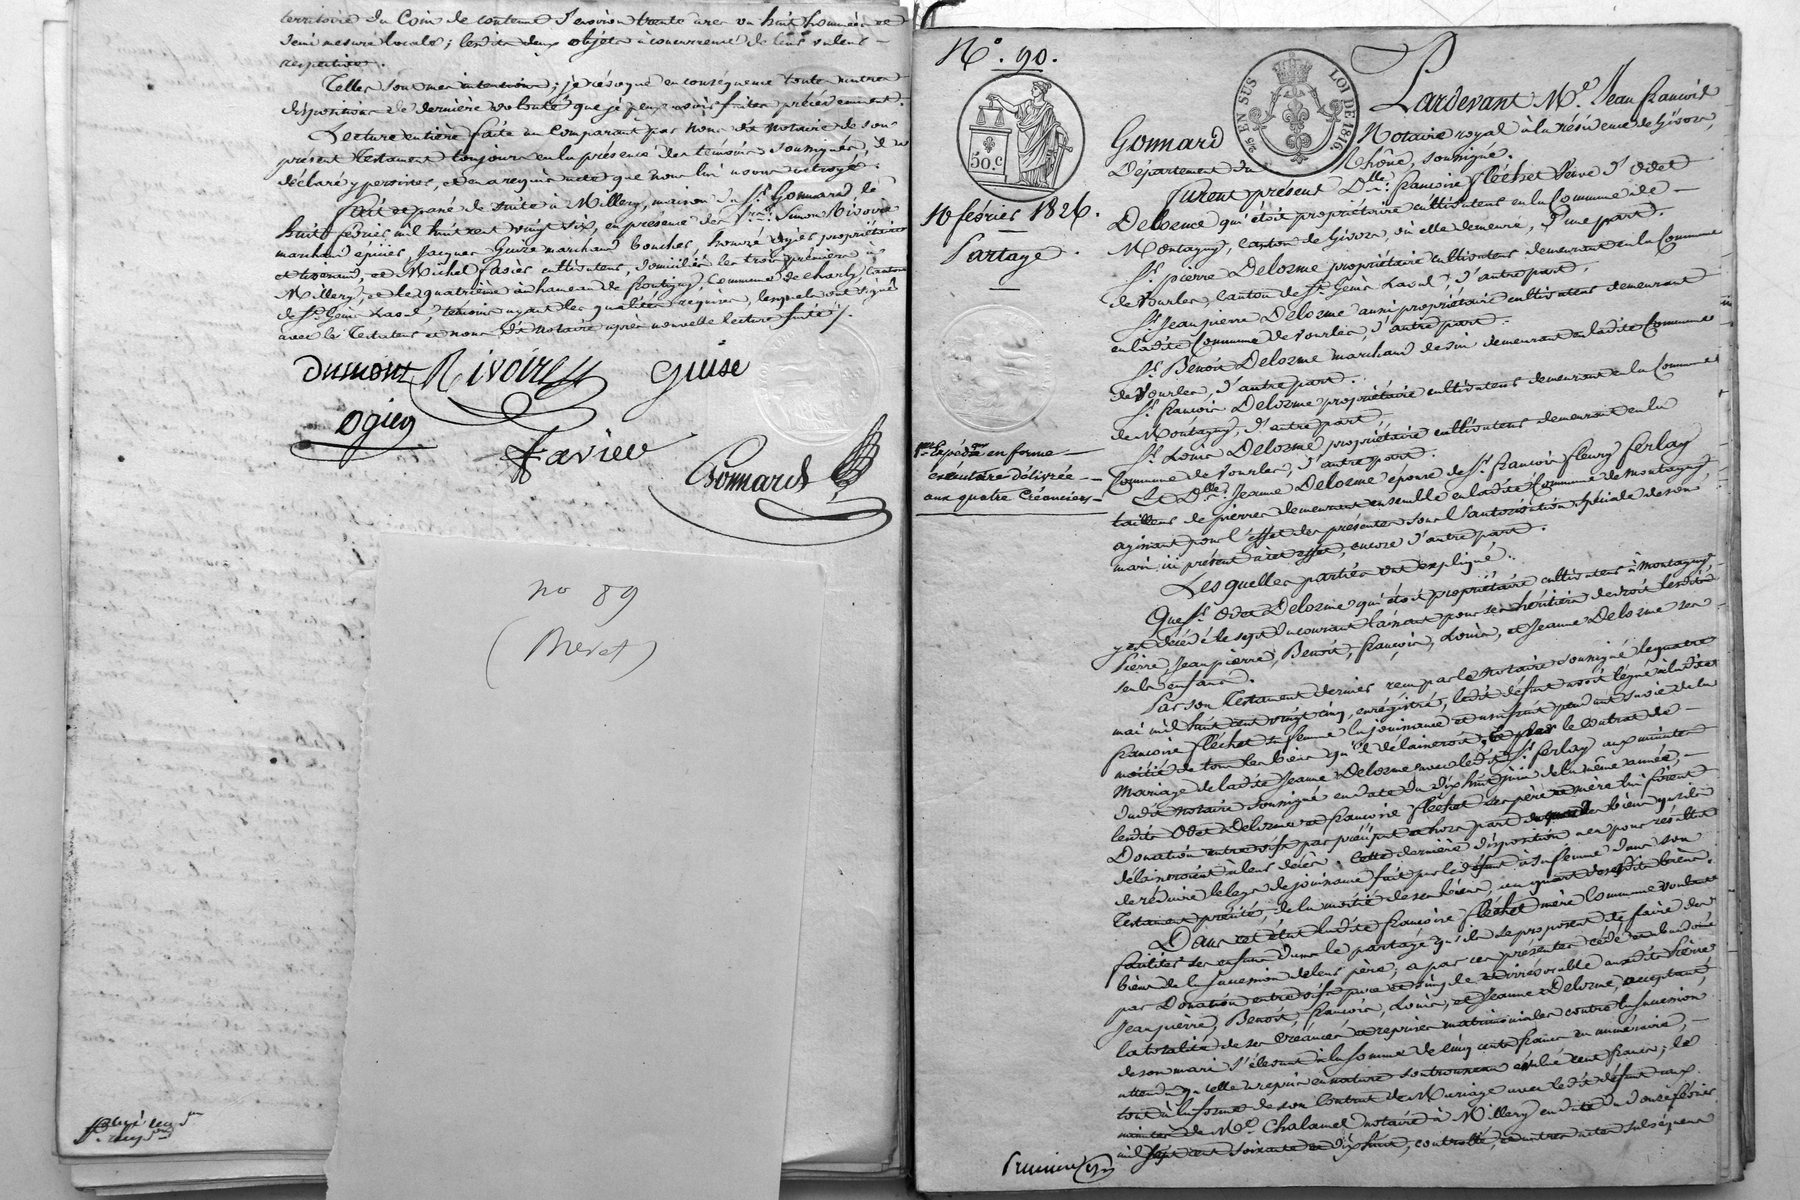 territoire du Coin de contenu d'environ trente ares ou huit hommées et
demi mesure locale; lesdits deux objets à concurrence de leurs valeurs
respectives.
Telles sont mes intentions; je révoque en conséquence toutes autres
dispositions de dernière volonté que je peux avoir faites précédemment.
Lecture entière faite au Comparant par nous dit notaire de son
présent Testament toujours en la présence des témoins soussignés, il a
déclaré y persister, et en a requis acte que nous lui avons octroyé.
fait et passé de suite à Millery, maison du Sr. Gonnard le
huit février mil huit cent vingt six, en présence des Srs. Simon Rivoire
marchand épicier, Jacques Guise marchand boucher, Ogier propriétaire
et tisserand, et Michel favier cultivateur, domiciliés les trois premiers à
Millery, et le quatrième au hameau de Commune de Charly, Canton
de St. Genis Laval, témoins ayant les qualités requises, lesquels ont signé
avec le Testateur et nous dit notaire après nouvelle lecture faite.
Dumont Rivoire Guise
Ogier
favier
Gonnard
no 89
(Brevet)
N°. 90.
EN SUS LOI DE 1816
50.c
16 février 1826.
Partage
1ère Expédon en forme
exécutoire délivrée
aux quatre Créanciers
Pardevant Me. Jean françois
Gonnard Notaire royal à la résidence de Givors,
Département du Rhône, soussigné.
furent présent Dlle. françoise fléchet veuve d'Odet
Delorme qui étoit propriétaire cultivateur en la Commune de
Montagny, Canton de Givors, où elle demeure, d'une part.
Sr. pierre Delorme propriétaire cultivateur demeurant en la Commune
de Vourles, Canton de St. Genis Laval, d'autre part.
Sr. Jean pierre Delorme aussi propriétaire cultivateur demeurant
en ladite Commune de Vourles, d'autre part.
Sr. Benoit Delorme marchand de vin demeurant en ladite Commune
de Vourles, d'autre part.
Sr. françois Delorme propriétaire cultivateur demeurant en la Commune
de Montagny, d'autre part.
Sr. Louis Delorme propriétaire cultivateur demeurant en la
Commune de Vourles, d'autre part.
Et Dlle. Jeanne Delorme épouse de Sr. françois fleury ferlay
tailleur de pierres demeurant ensemble en ladite Commune de Montagny,
agissant pour l'effet des présentes sous l'autorisation spéciale de son
mari ici présent à cet effet, encore d'autre part.
Lesquelles parties ont expliqué:
Que Sr. Odet Delorme qui étoit propriétaire cultivateur à Montagny,
y est décédé le sept du courant laissant pour ses héritiers de droit lesdits
Pierre, Jean pierre, Benoit, françois, Louis, et Jeanne Delorme ses
seuls enfans.
Par son Testament dernier reçu par le Notaire soussigné le quatre
mai mil huit cent vingt cinq, enregistré, ledit défunt avoit légué à ladite
françoise fléchet sa femme la jouissance et usufruit pendant sa vie de la
moitié de tous les biens qu'il délaisseroit, et par le Contrat de
Mariage de ladite Jeanne Delorme avec ledit Sr. ferlay aux minutes
dudit notaire soussigné en date du dix huit juin de la même année,
lesdits Odet Delorme et françoise fléchet ses père et mère lui firent
Donation entre vifs par préciput et hors part du quart des biens qu'ils
délaisseroient à leur décès; cette dernière disposition a eu pour résultat
de réduire le legs de jouissance fait par ledit défunt à sa femme dans son
Testament précité, de la moitié de ses biens, au quart desdits biens.
Dans cet état ladite françoise fléchet mère Commune voulant
faciliter ses enfans dans le partage qu'ils se proposent de faire des
biens de la succession de leur père, a par ces présentes cédé et abandonné
par Donation entre vifs pure et simple et irrévocable auxdits Pierre,
Jean pierre, Benoit, françois, Louis, et Jeanne Delorme, acceptant,
la totalité de ses Créances et reprises matrimoniales contre la succession
de son mari s'élevant à la somme de cinq cents francs en numéraire,
attendu qu'elle a repris en nature son trousseau évalué cent francs; le
tout à la forme de son Contrat de Mariage avec ledit défunt aux
minutes de Me. Chalamel notaire à Millery en date du onze février
mil sept cent soixante et dix huit, contrôlé, et autres actes subséquens